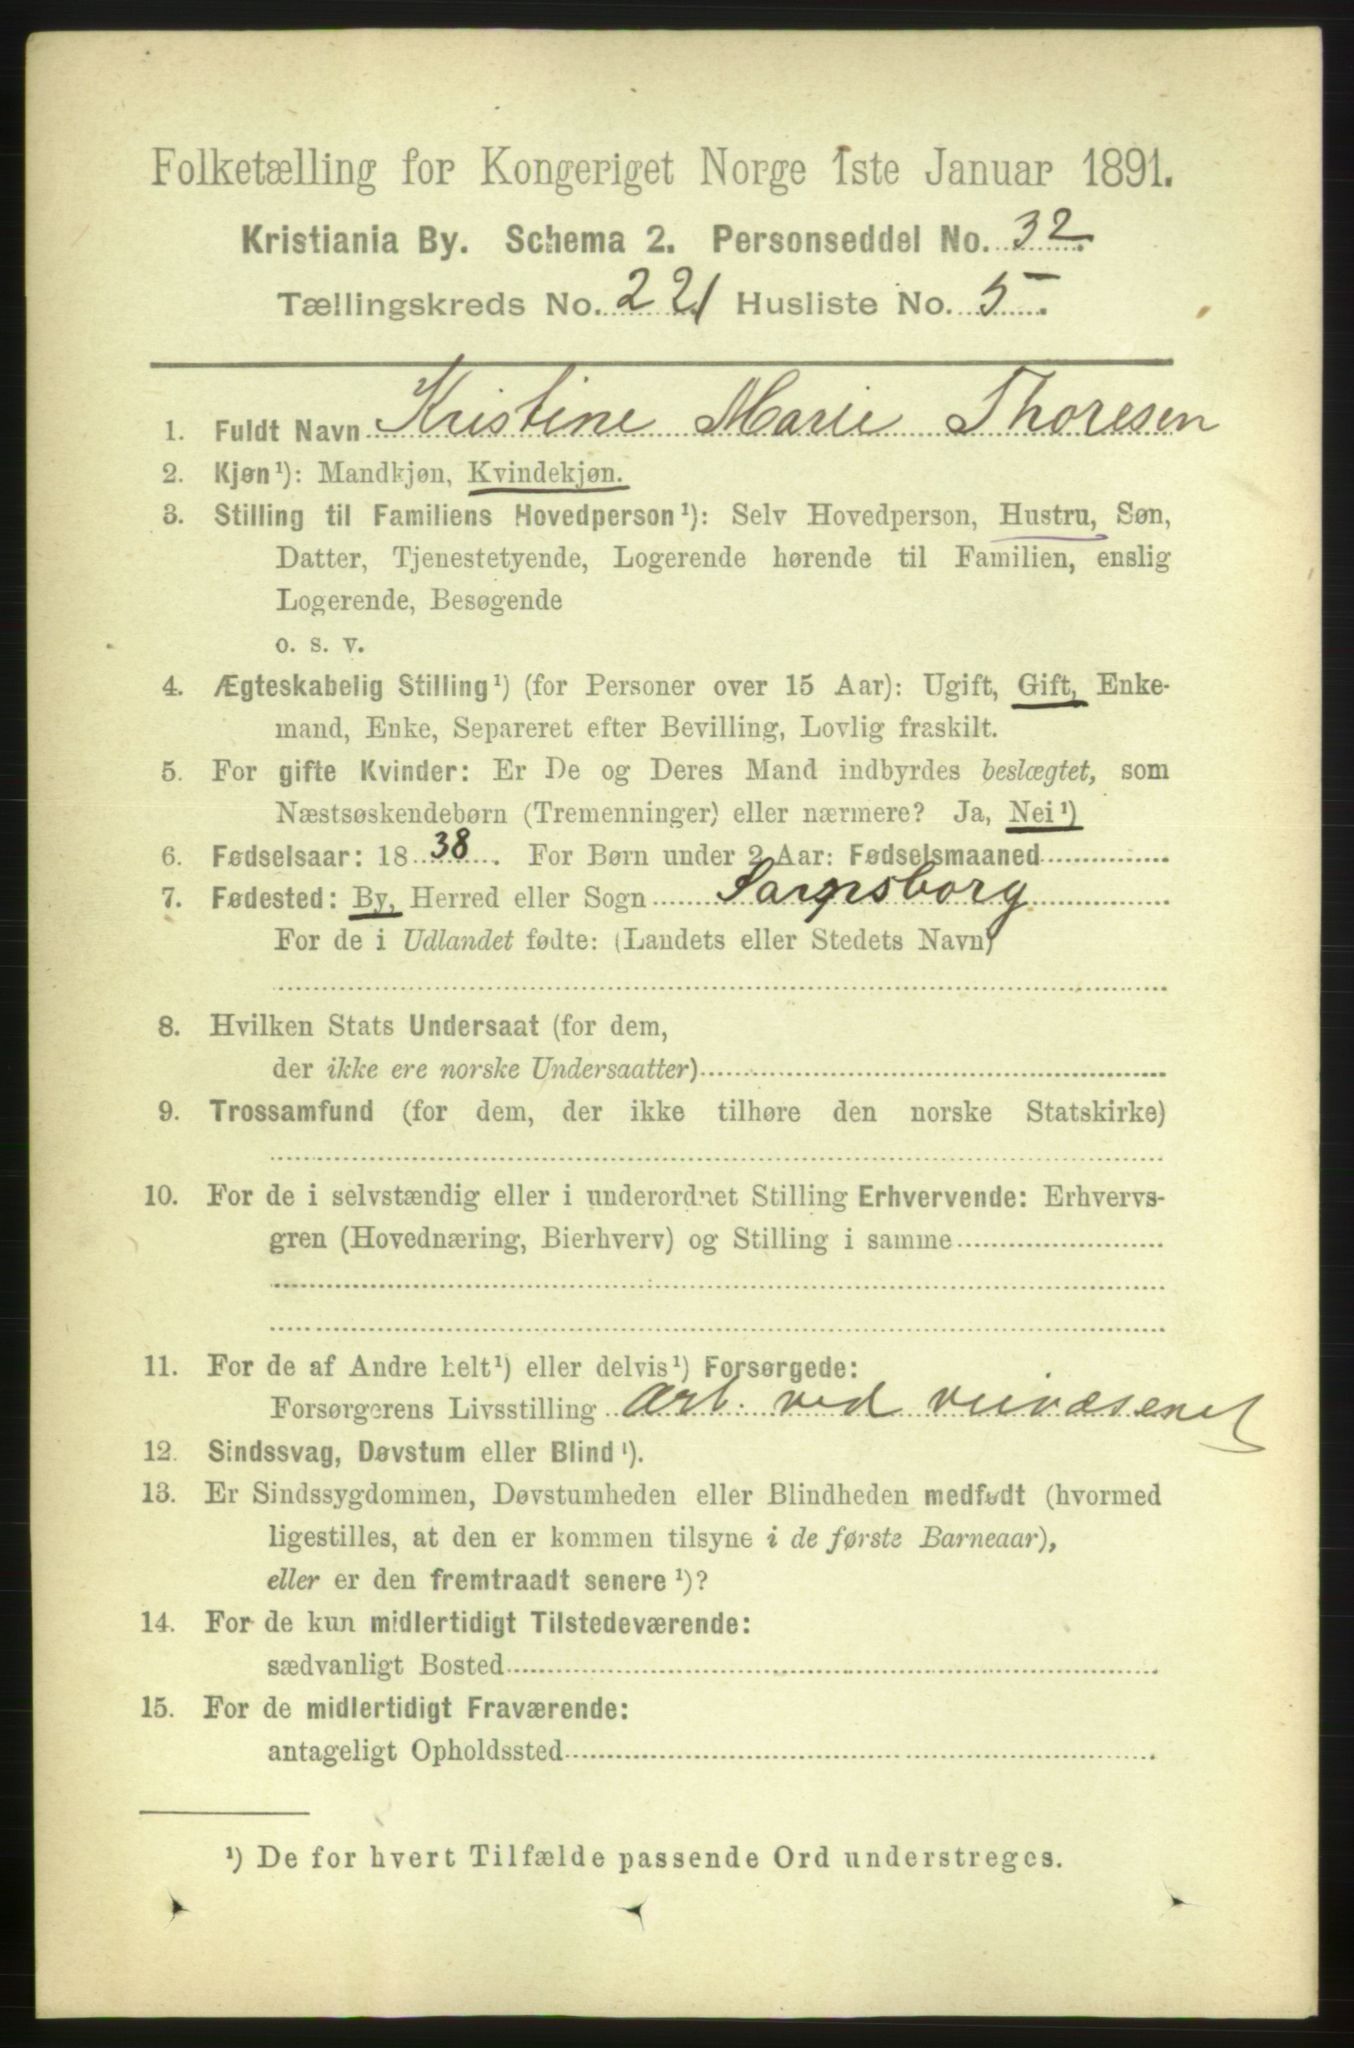 Folketælling for Kongeriget Norge 1ste Januar 1891.
Kristiania By. Schema 2. Personseddel No. 32.
Tællingskreds No. 221 Husliste No. 5.
1. Fuldt Navn Kristine Marie Thoresen
2. Kjøn¹): Mandkjøn, Kvindekjøn.
3. Stilling til Familiens Hovedperson¹): Selv Hovedperson, Hustru, Søn,
Datter, Tjenestetyende, Logerende hørende til Familien, enslig
Logerende, Besøgende
o. s. v.
4. Ægteskabelig Stilling¹) (for Personer over 15 Aar): Ugift, Gift, Enke-
mand, Enke, Separeret efter Bevilling, Lovlig fraskilt.
5. For gifte Kvinder: Er De og Deres Mand indbyrdes beslægtet, som
Næstsøskendebørn (Tremenninger) eller nærmere? Ja, Nei¹)
6. Fødselsaar: 1838. For Børn under 2 Aar: Fødselsmaaned
7. Fødested: By, Herred eller Sogn Sarpsborg
For de i Udlandet fødte: (Landets eller Stedets Navn)
8. Hvilken Stats Undersaat (for dem,
der ikke ere norske Undersaatter)
9. Trossamfund (for dem, der ikke tilhøre den norske Statskirke)
10. For de i selvstændig eller i underordnet Stilling Erhvervende: Erhvervs-
gren (Hovednæring, Bierhverv) og Stilling i samme
11. For de af Andre helt¹) eller delvis¹) Forsørgede:
Forsørgerens Livsstilling Arb. ved veivæsenet
12. Sindssvag, Døvstum eller Blind¹).
13. Er Sindssygdommen, Døvstumheden eller Blindheden medfødt (hvormed
ligestilles, at den er kommen tilsyne i de første Barneaar),
eller er den fremtraadt senere¹)?
14. For de kun midlertidigt Tilstedeværende:
sædvanligt Bosted
15. For de midlertidigt Fraværende:
antageligt Opholdssted
¹) De for hvert Tilfælde passende Ord understreges.